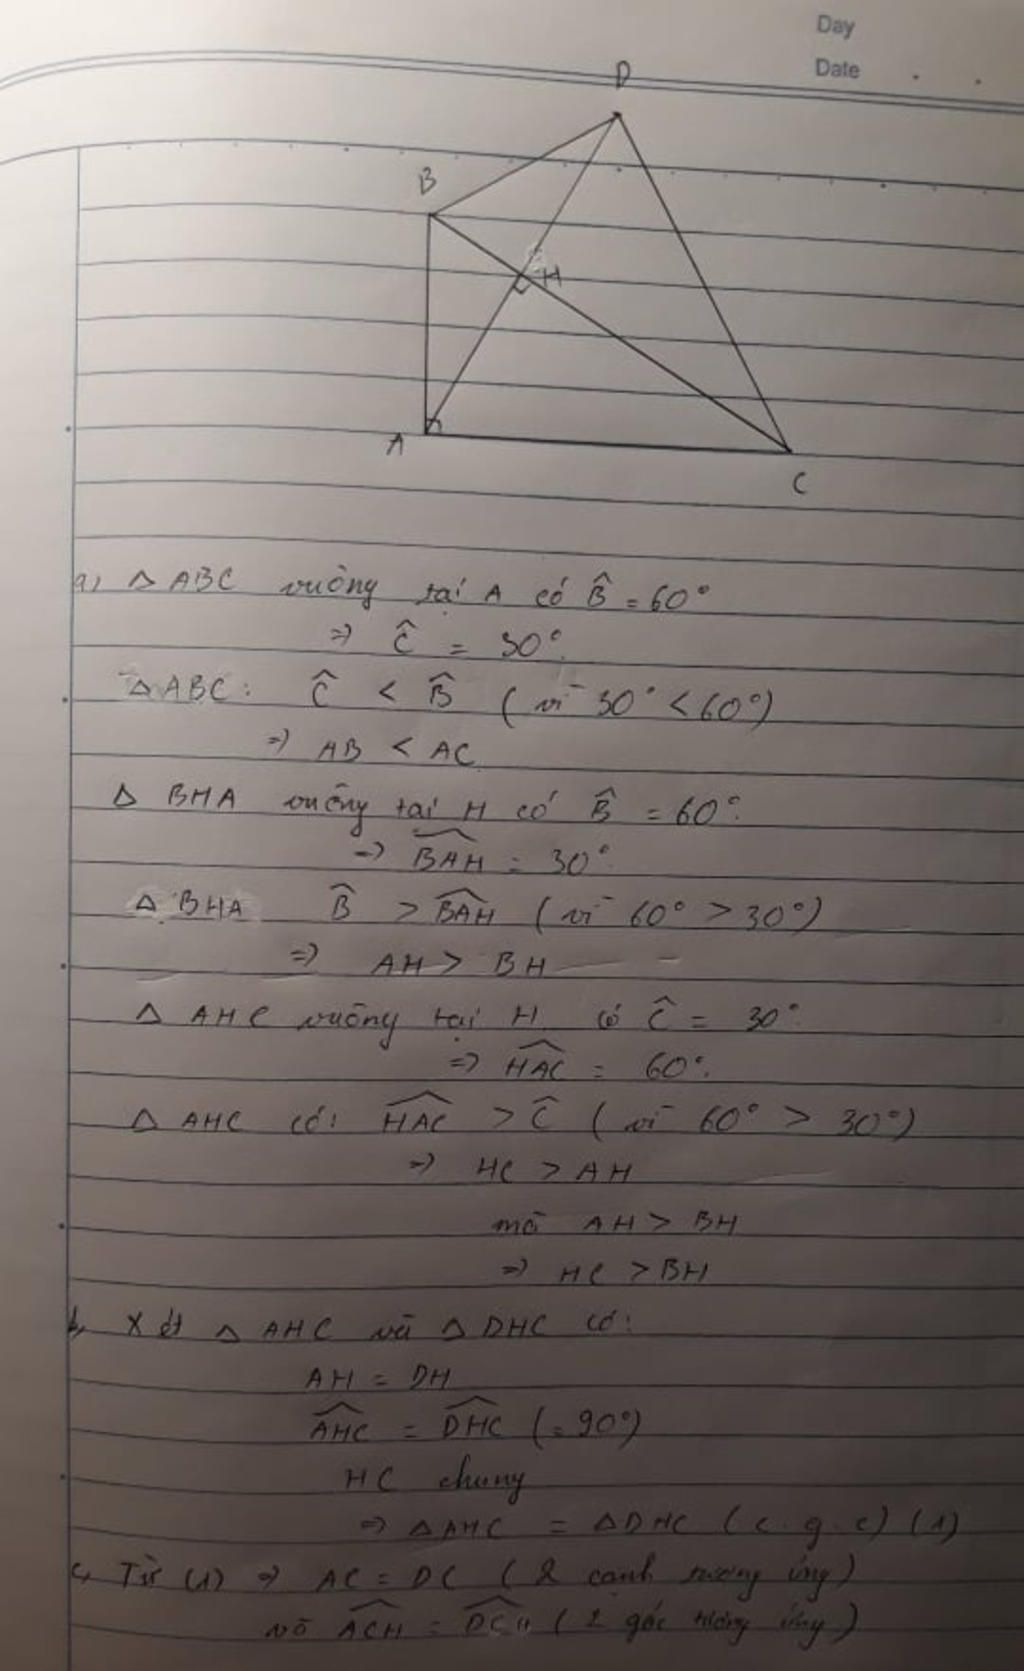 Day
Date
D
B
H
A
C
a, Δ ABC vuông tại A có B̂ = 60°
=> Ĉ = 30°.
Δ ABC: Ĉ < B̂ ( vì 30° < 60°)
=> AB < AC
Δ BHA vuông tại H có B̂ = 60°.
=> \widehat{BAH} = 30°.
Δ BHA B̂ > \widehat{BAH} ( vì 60° > 30°)
=> AH > BH
Δ AHC vuông tại H có Ĉ = 30°.
=> \widehat{HAC} = 60°.
Δ AHC có: \widehat{HAC} > Ĉ ( vì 60° > 30°)
=> HC > AH
mà AH > BH
=> HC > BH
b, Xét Δ AHC và Δ DHC có:
AH = DH
\widehat{AHC} = \widehat{DHC} (= 90°)
HC chung
=> Δ AHC = Δ DHC ( c . g . c) (1)
c, Từ (1) => AC = DC ( 2 cạnh tương ứng )
và \widehat{ACH} = \widehat{DCH} ( 2 góc tương ứng )